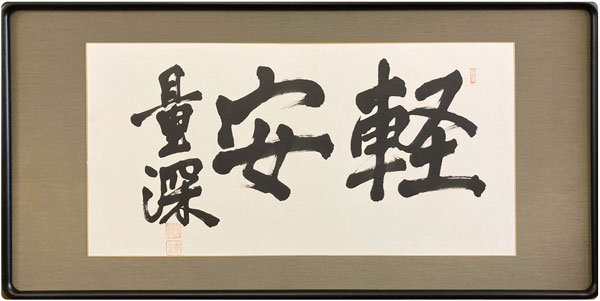 軽安
量深